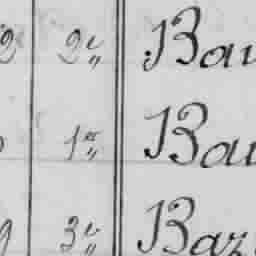 2 2e Bau
1re Bau
9 3e Baz